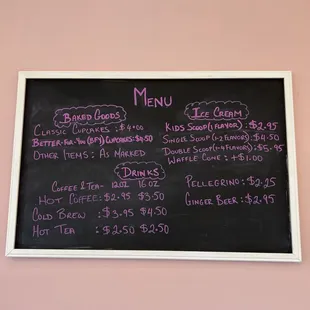 MENU
BAKED GOODS
CLASSIC CUPCAKES : $4.00
BETTER-FOR-YOU (BFY) CUPCAKES: $4.50
OTHER ITEMS : AS MARKED
ICE CREAM
KIDS SCOOP (1 FLAVOR) : $2.95
SINGLE SCOOP (1-2 FLAVORS) : $4.50
DOUBLE SCOOP (1-4 FLAVORS) : $5.95
WAFFLE CONE : +$1.00
DRINKS
COFFEE & TEA- 12OZ 16OZ
HOT COFFEE: $2.95 $3.50
COLD BREW : $3.95 $4.50
HOT TEA : $2.50 $2.50
PELLEGRINO : $2.25
GINGER BEER : $2.95